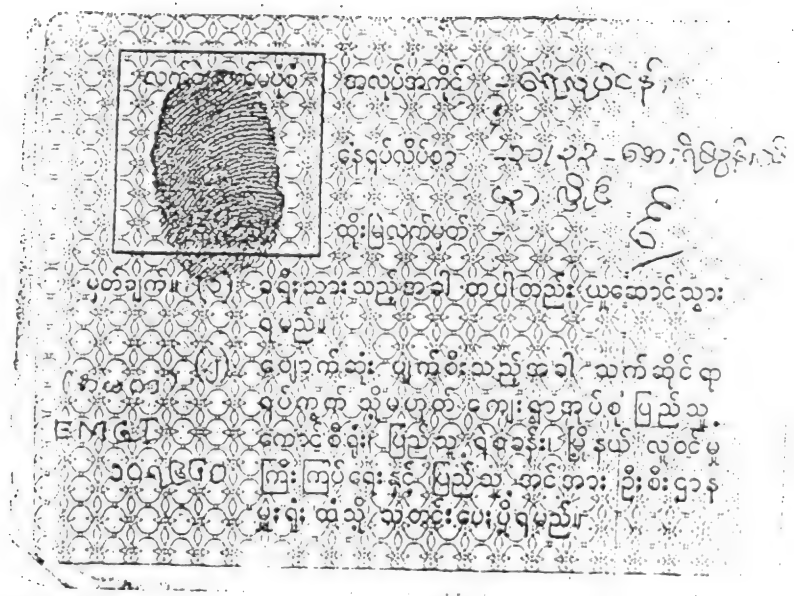 လက်ဝဲလက်မပုံစံ
အလုပ်အကိုင် -
နေရပ်လိပ်စာ - ၃၁/၃၃ -
လှိုင်
ထိုးမြဲလက်မှတ် -
မှတ်ချက်။ (၁) ခရီးသွားသည့်အခါ တပါတည်း ယူဆောင်သွား
ရမည်။
(၂) ပျောက်ဆုံး ပျက်စီးသည့်အခါ သက်ဆိုင်ရာ
ရပ်ကွက် သို့မဟုတ် ကျေးရွာအုပ်စု ပြည်သူ့
ကောင်စီရုံး၊ ပြည်သူ့ရဲစခန်း၊ မြို့နယ် လူဝင်မှု
ကြီးကြပ်ရေးနှင့် ပြည်သူ့အင်အား ဦးစီးဌာန
မှူးရုံး ထံသို့ သတင်းပေးပို့ရမည်။